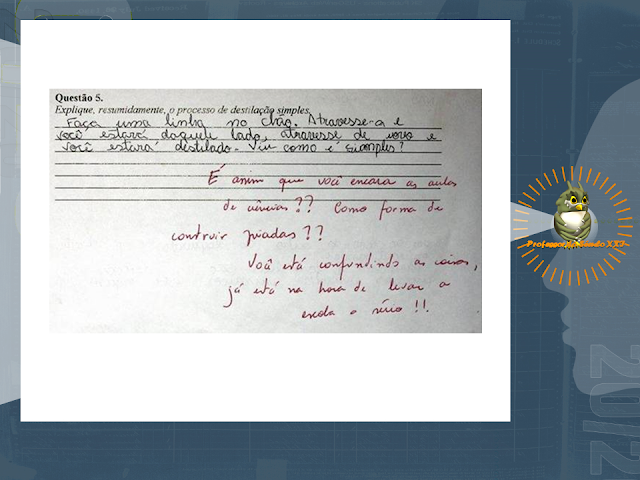 Questão 5.
Explique, resumidamente, o processo de destilação simples.
Faça uma linha no chão. Atravesse-a e
você estará daquele lado, atravesse de novo e
você estará destilado. Viu como é simples?
É assim que você encara as aulas
de ciências?? Como forma de
construir piadas??
Você está confundindo as coisas,
já está na hora de levar a
escola a sério!!
Professor do Século XXI
20/2